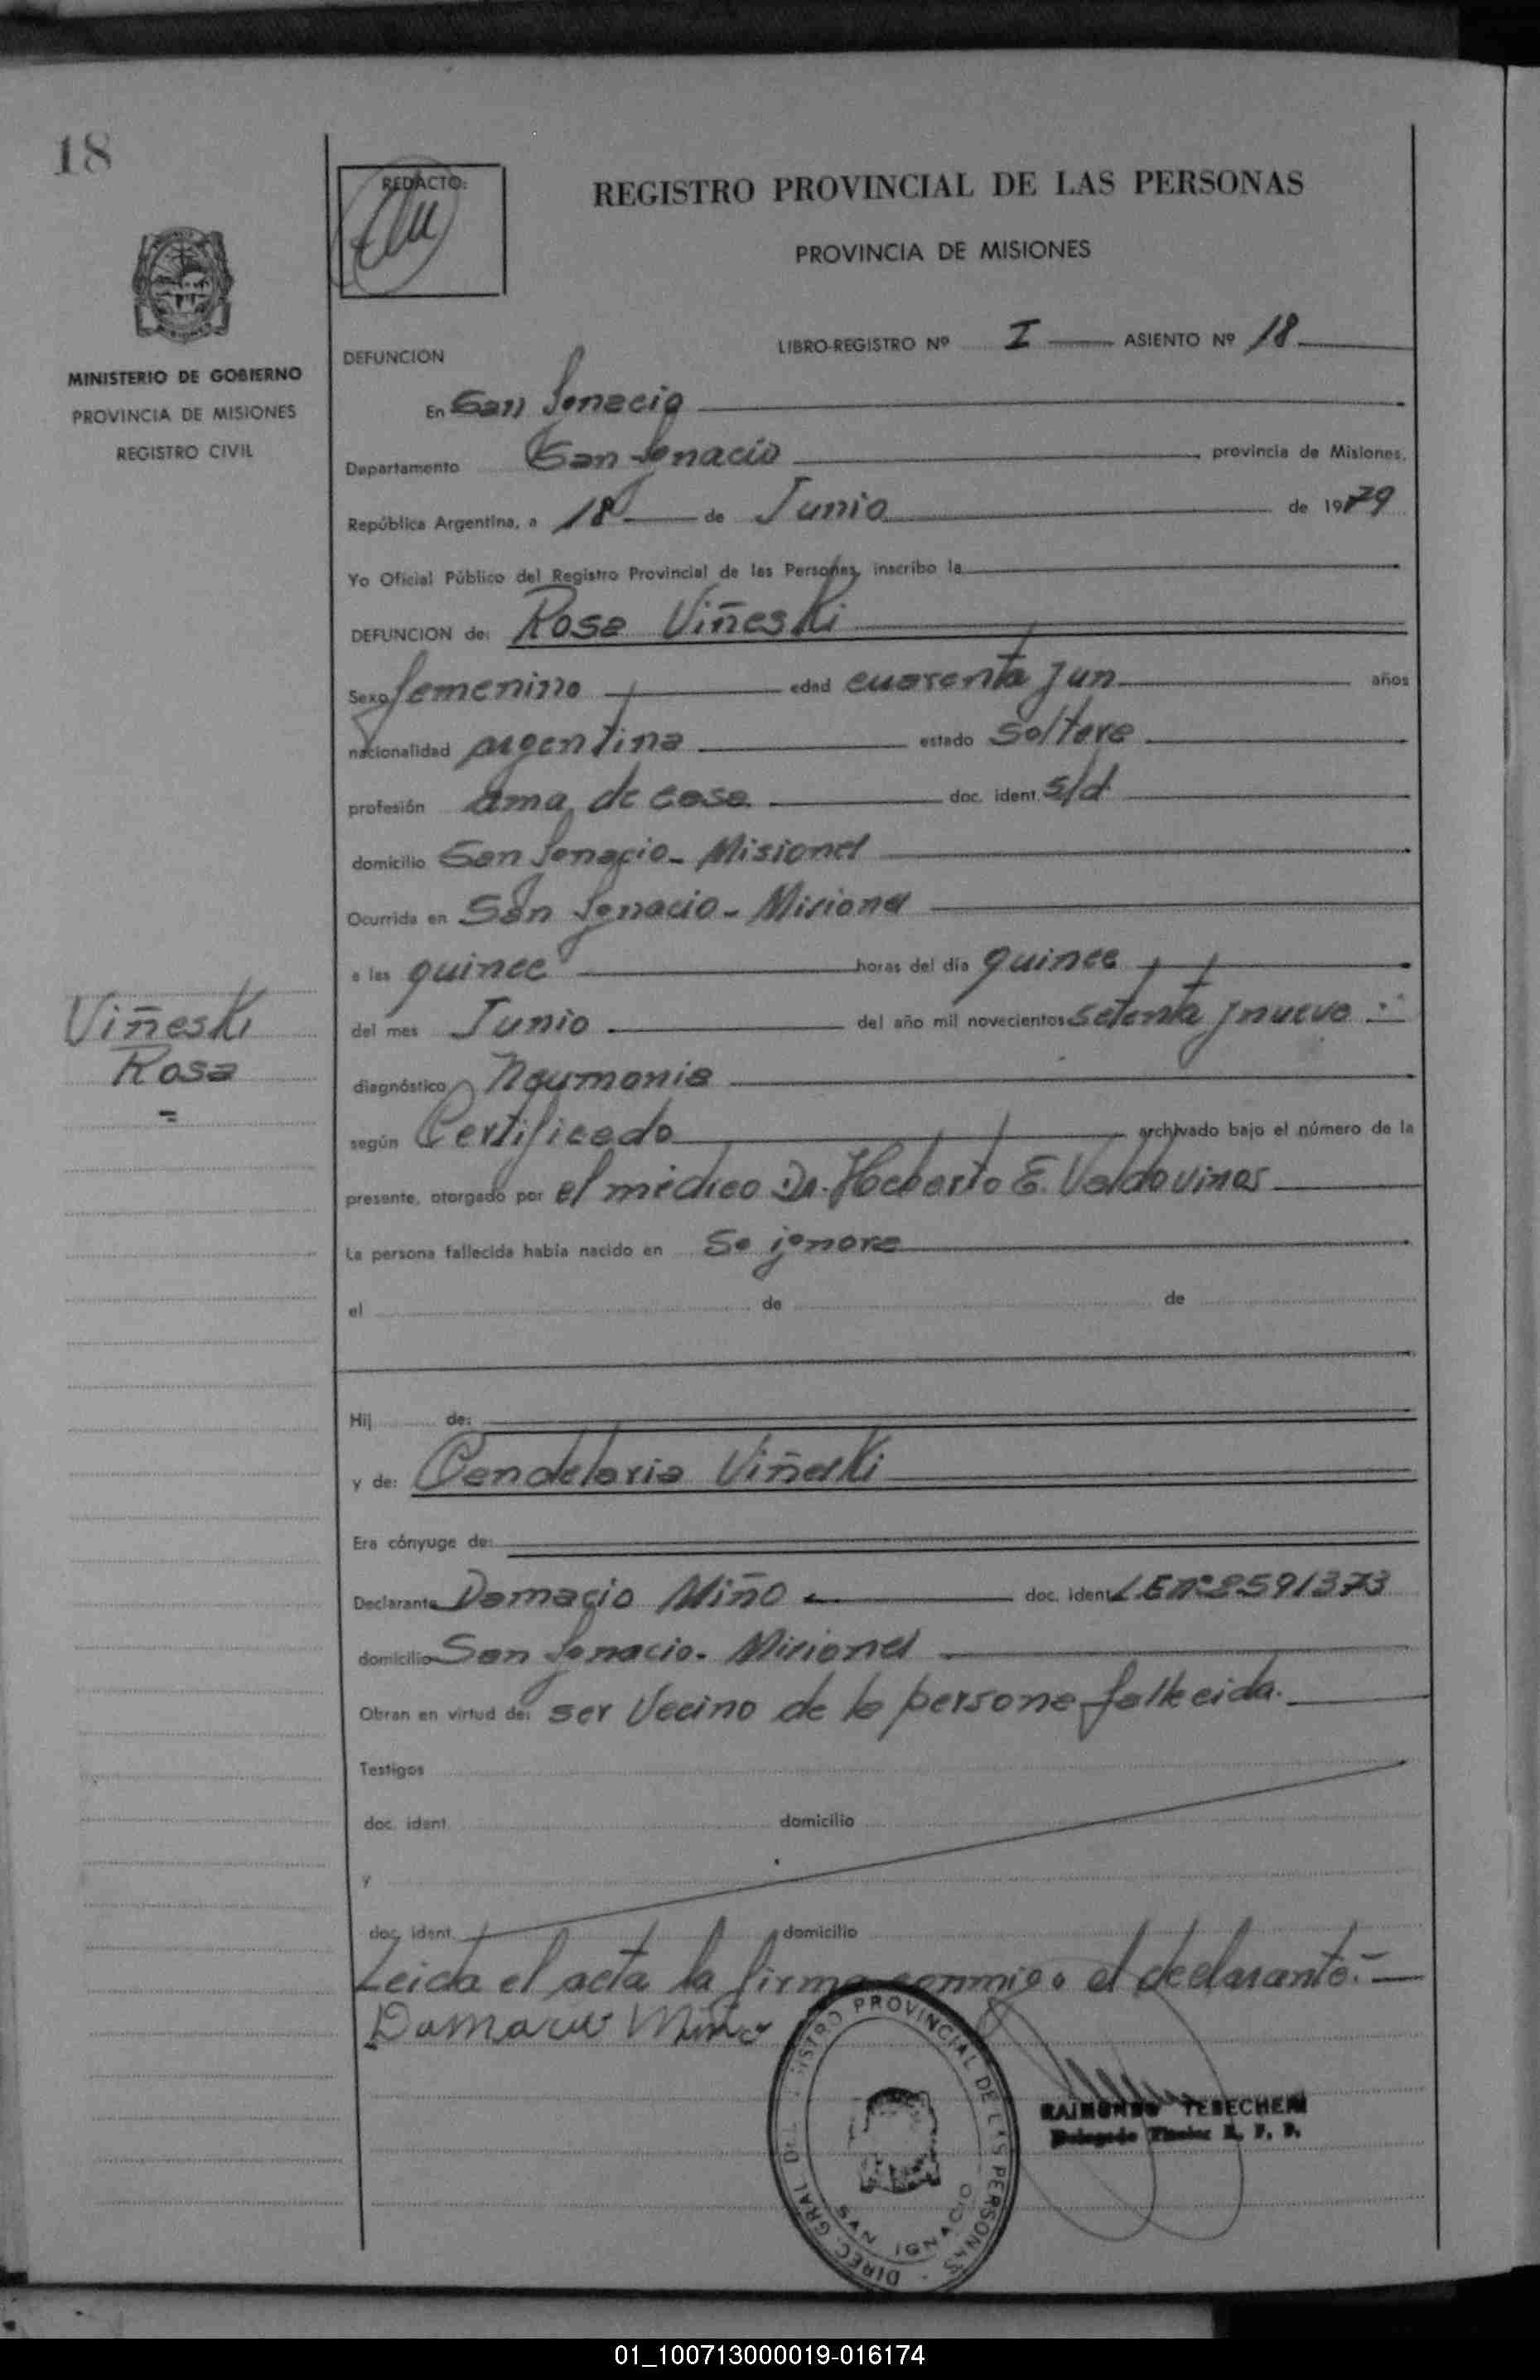 18
REDACTO:
REGISTRO PROVINCIAL DE LAS PERSONAS
PROVINCIA DE MISIONES
MINISTERIO DE GOBIERNO
PROVINCIA DE MISIONES
REGISTRO CIVIL
LIBRO-REGISTRO Nº I ASIENTO Nº 18
DEFUNCION
En San Ignacio
Departamento San Ignacio provincia de Misiones,
República Argentina, a 18 de Junio de 1979
Yo Oficial Público del Registro Provincial de las Personas, inscribo la
DEFUNCION de: Rosa Viñeski
Sexo femenino edad cuarenta y un años
nacionalidad argentina estado soltera
profesión ama de casa doc. ident. s/d
domicilio San Ignacio - Misiones
Ocurrida en San Ignacio - Misiones
a las quince horas del día quince
Viñeski
Rosa
del mes Junio del año mil novecientos setenta y nueve
diagnóstico Neumonia
según Certificado archivado bajo el número de la
presente, otorgado por el médico Dr. E. Valdovinos
La persona fallecida había nacido en Se ignora
el de de
Hij de:
y de: Candelaria Viñeski
Era cónyuge de:
Declarante Damacio Miño doc. ident. L.E.Nº 2591373
domicilio San Ignacio - Misiones
Obran en virtud de: ser Vecino de la persona fallecida.
Testigos
doc. ident. domicilio
y
doc. ident. domicilio
Leida el acta la firma conmigo el declarante.
Damacio Miño
DIREC. GRAL DEL REGISTRO PROVINCIAL DE LAS PERSONAS
SAN IGNACIO
RAIMUNDO TEBECHERI
Delegado Titular R. P. P.
01_100713000019-016174